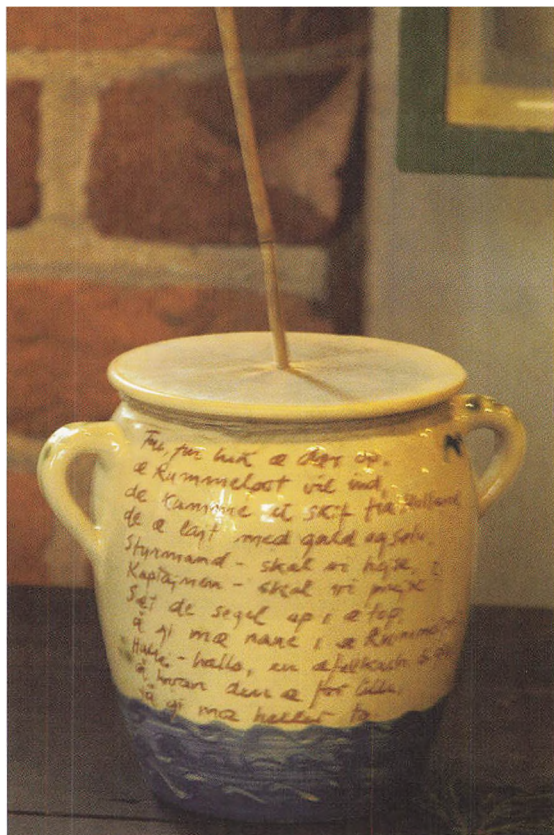 Fru, fru luk æ dør op,
æ Rummelpot vil ind,
de kamme et skif fra Holland
de æ lajt med guld og sølv.
Styrmand - skal vi hejse,
Kaptajnen - skal vi prejse
Sæt de segel op i æ top
å gi mæ nåne i æ Rummelpot
Halli - hallo, en æfelkach
å hvan den æ for lille,
så gi mæ heller to